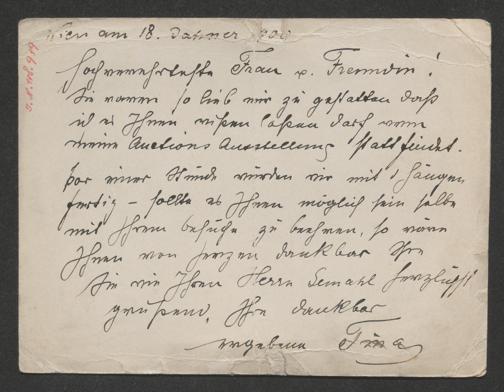 Wien am 18. Jänner
Hochverehrteste Frau u. Freundin!
Sie waren so lieb mir zu gestatten daß
ich es Ihnen wißen laßen darf wenn
meine Auctions Ausstellung stattfindet.
Vor einer Stunde wurden wir mit d Hängen
fertig – sollte es Ihnen möglich sein selbe
mit Ihrem besuche zu beehren, so wäre
Ihnen von herzen dankbar Ihre
Sie wie Ihren Herrn Gemahl herzlichst
grüßend, Ihre dankbar
ergebene Tina